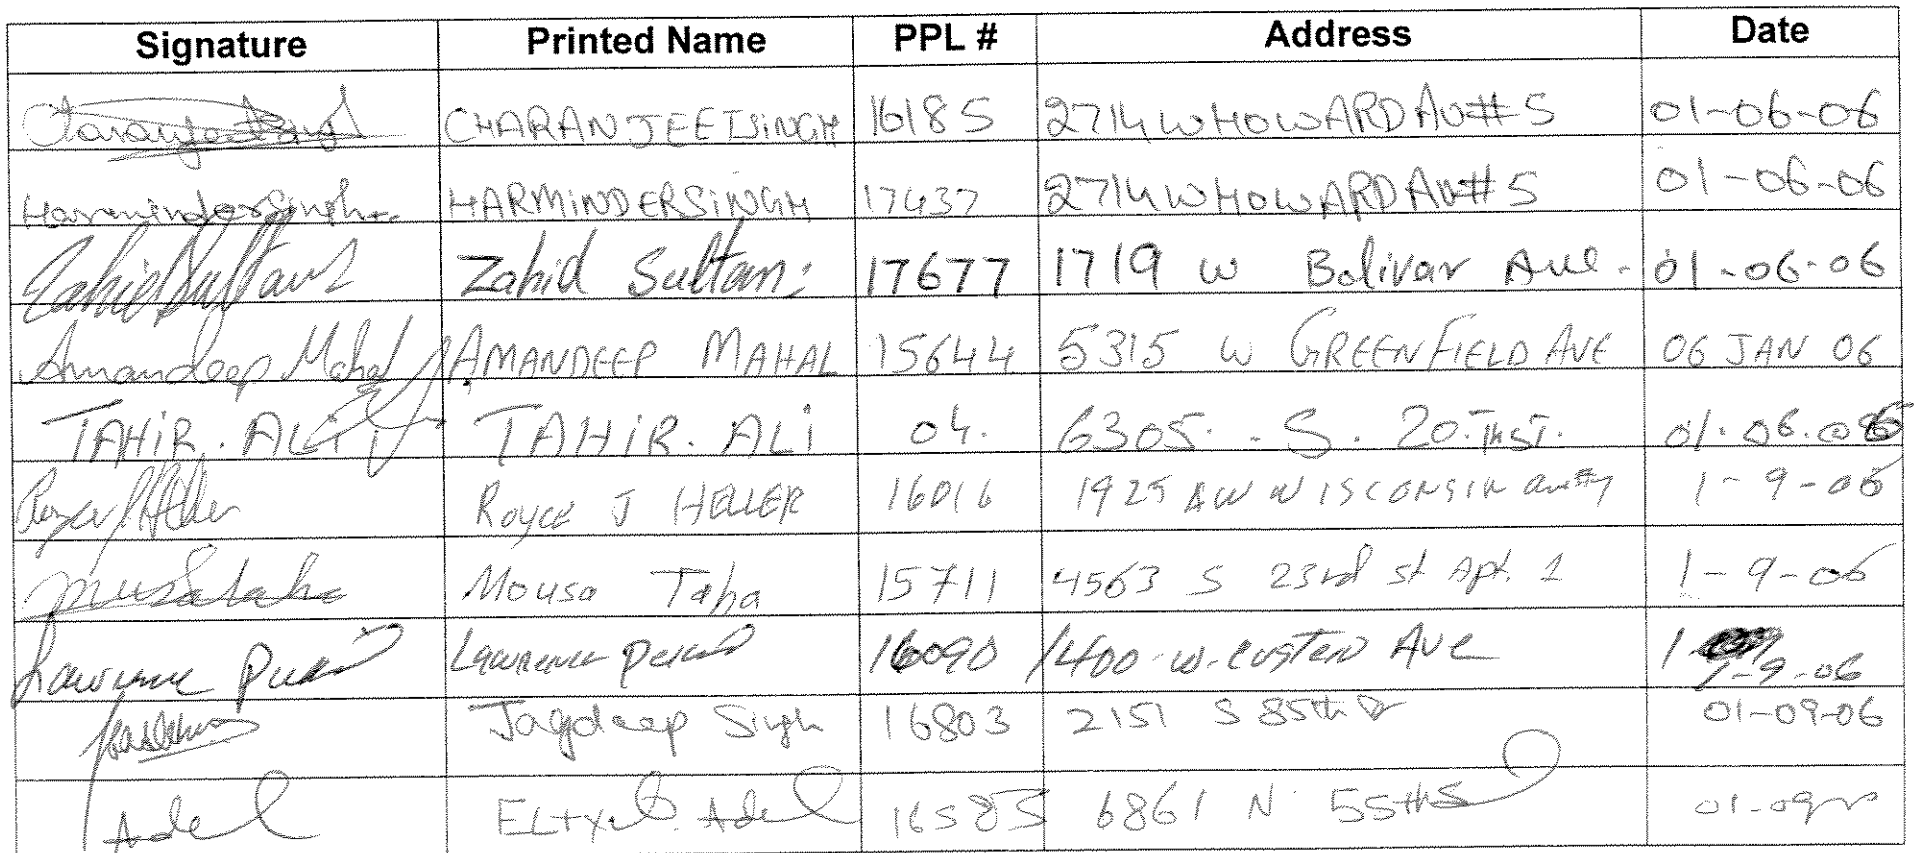 Signature Printed Name PPL # Address Date
CHARANJEETSINGH 16185 2714 W HOWARD AV# 5 01-06-06
Harminder Singh HARMINDERSINGH 17437 2714 W HOWARD AV# 5 01-06-06
Zahid Sultan Zahid Sultan 17677 1719 W Bolivar Ave. 01-06-06
Amandeep Mahal AMANDEEP MAHAL 15644 5315 W GREENFIELD AVE 06 JAN 06
TAHIR. ALI TAHIR. ALI 04. 6305. S. 20.TH ST. 01.06.06
ROYCE J HELLER 16016 1925 W WISCONSIN 1-9-06
Mousa Taha 15711 4563 S 23rd St Apt. 1 1-9-06
Lawrence Lawrence 16090 1400 W. Ave 1 1-9-06
Jagdeep Singh 16803 2151 S 85th 01-09-06
Adel Adel 16585 6861 N 55th 01-09